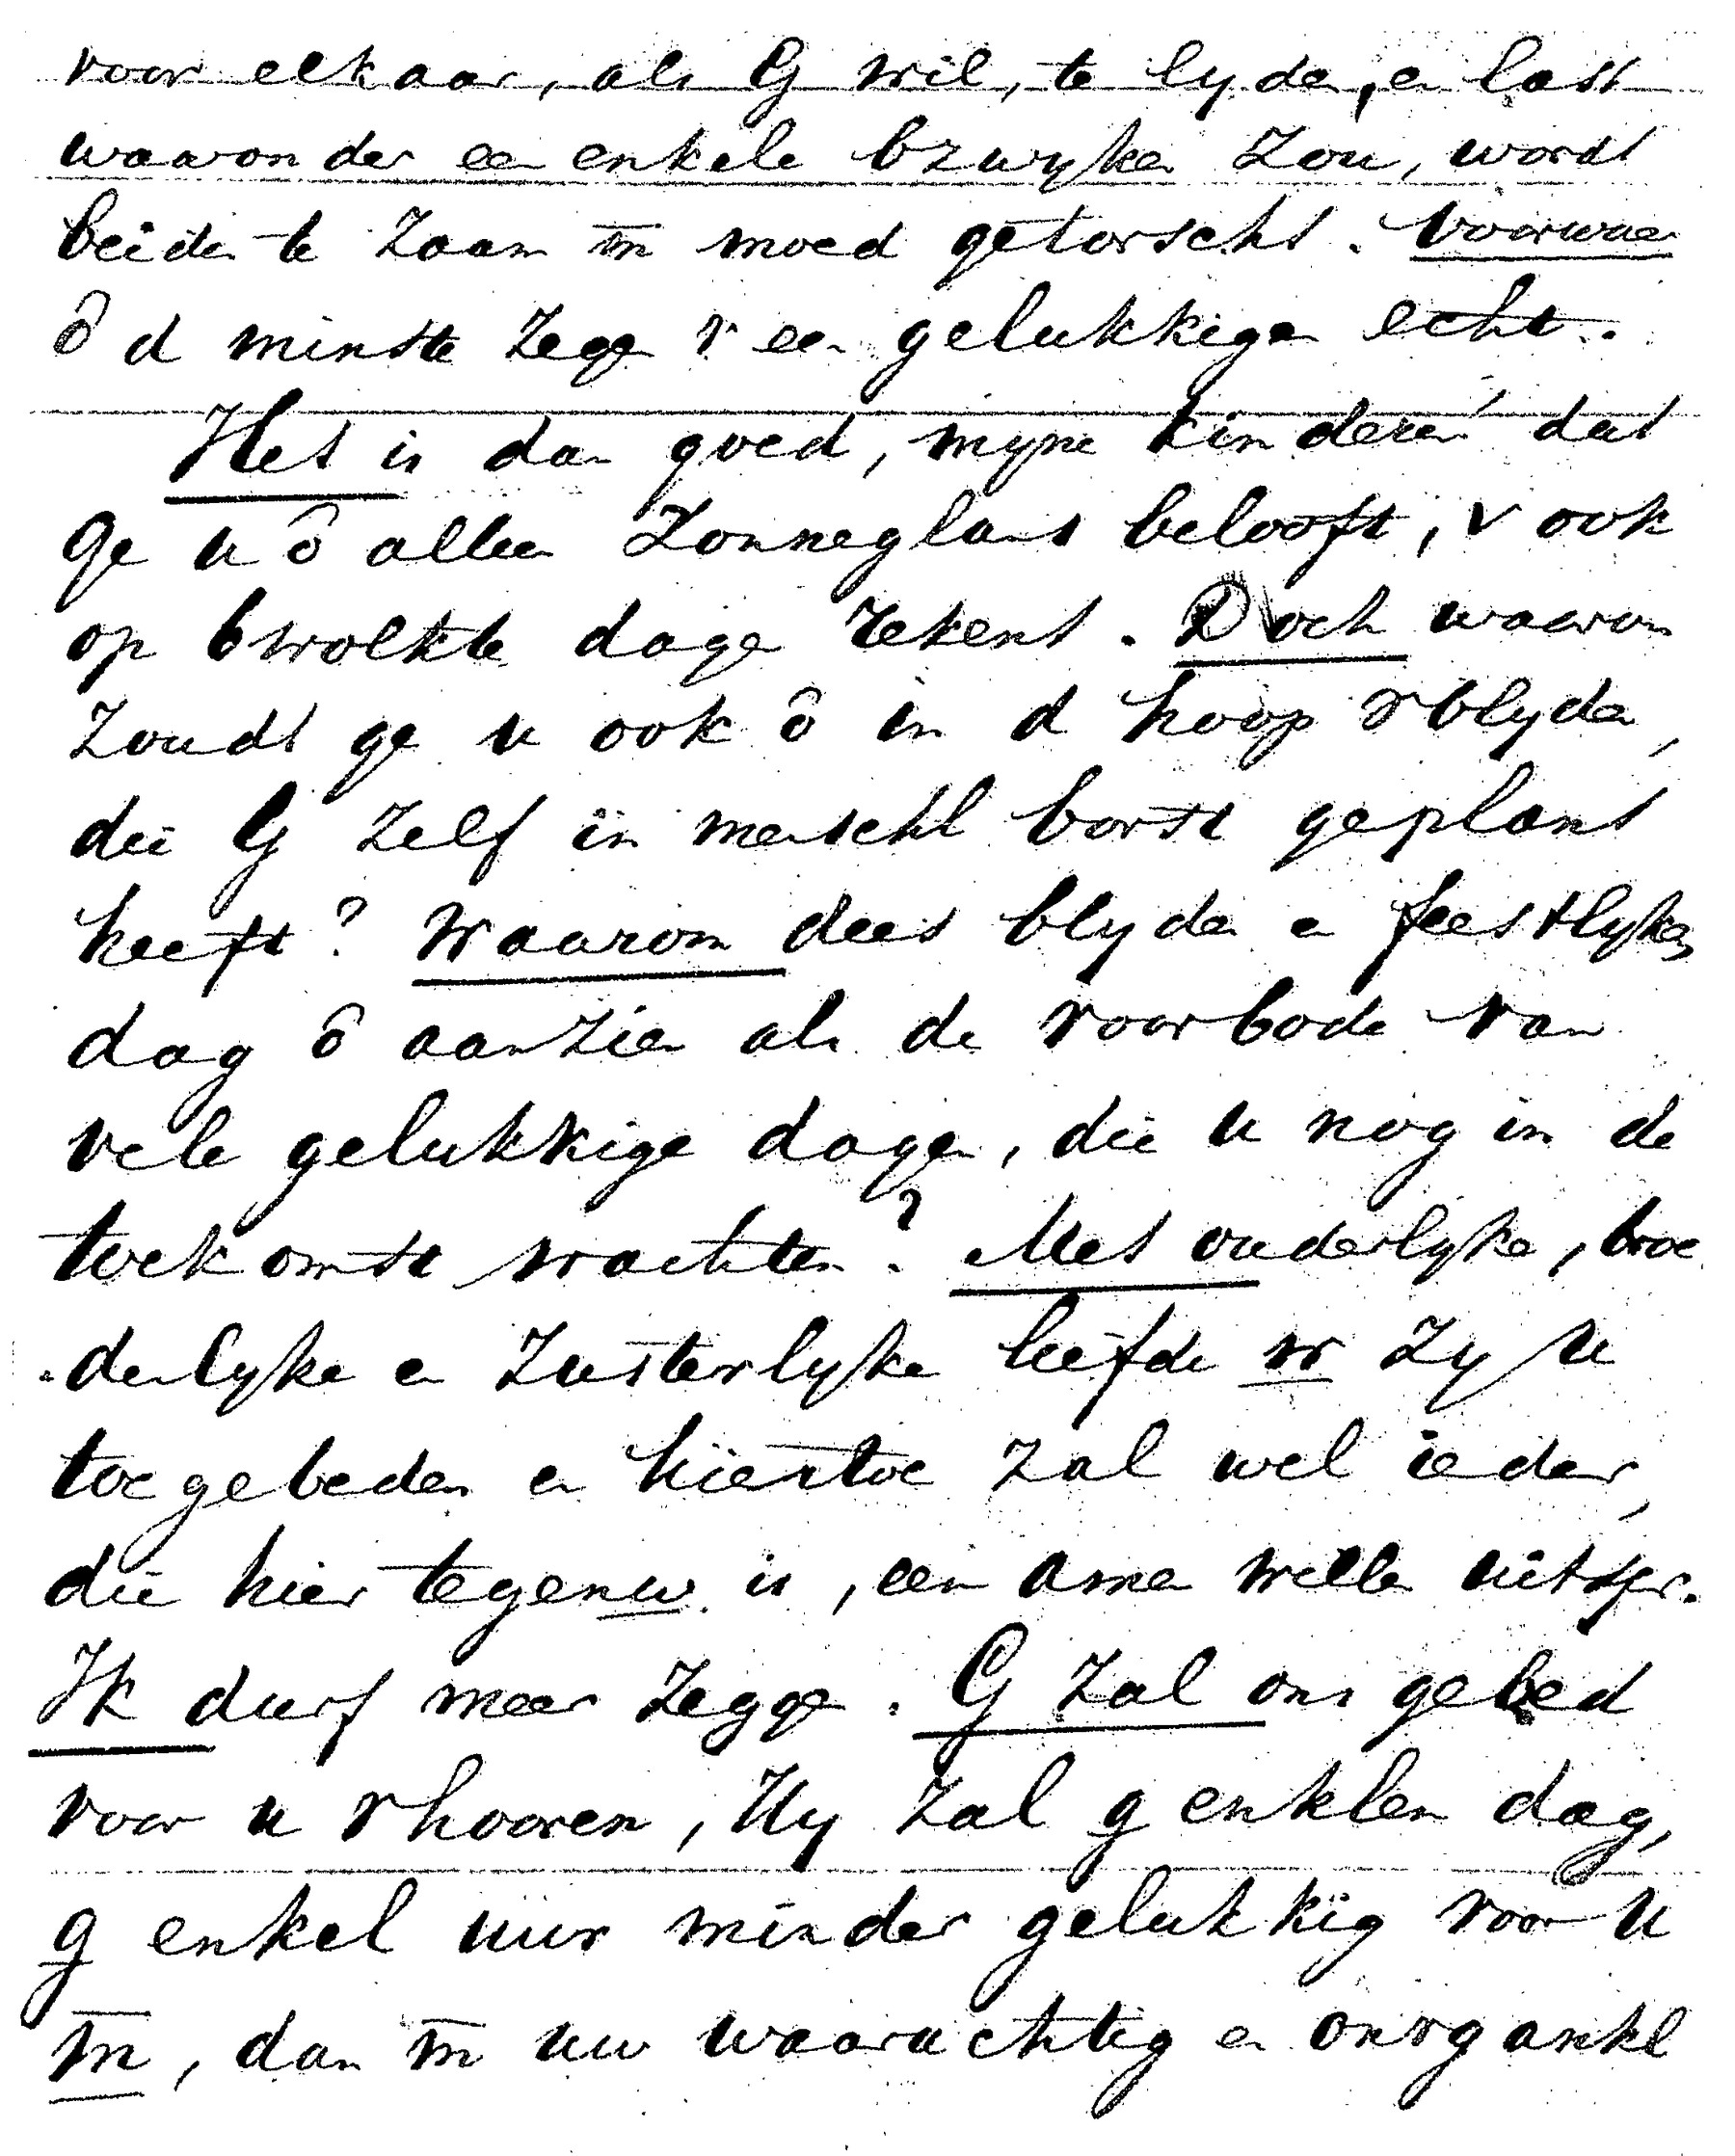 voor elkaar, als G wil, te lyden, en last
waaronder een enkele bzwyken zou, wordt
beiden te zaam m̄ moed getorscht. Voorwaar
ô d minste zegen v een gelukkigen echt.
Het is dan goed, myne kinderen! dat
ge u ô alleen zonneglans belooft, v ook
op bwolkte dagen rekent. Doch waarom
zoudt ge u ook ô in d hoop vblyden,
die G zelf in menschl borst geplant
heeft? Waarom dees blyden en feestlyken
dag ô aanzien als de voorbode van
vele gelukkige dagen, die u nog in de
toekomst wachten? Met ouderlyke, broe
derlyke en zusterlyke liefde w zy u
toegebeden en hiertoe zal wel ieder,
die hier tegenw is, een amen willen uitspr.
Ik durf meer zeggen. G zal ons gebed
voor u vhooren, Hy zal g enklen dag,
g enkel uur minder gelukkig voor u
m̄, dan m̄ uw waarachtig en onvgankl